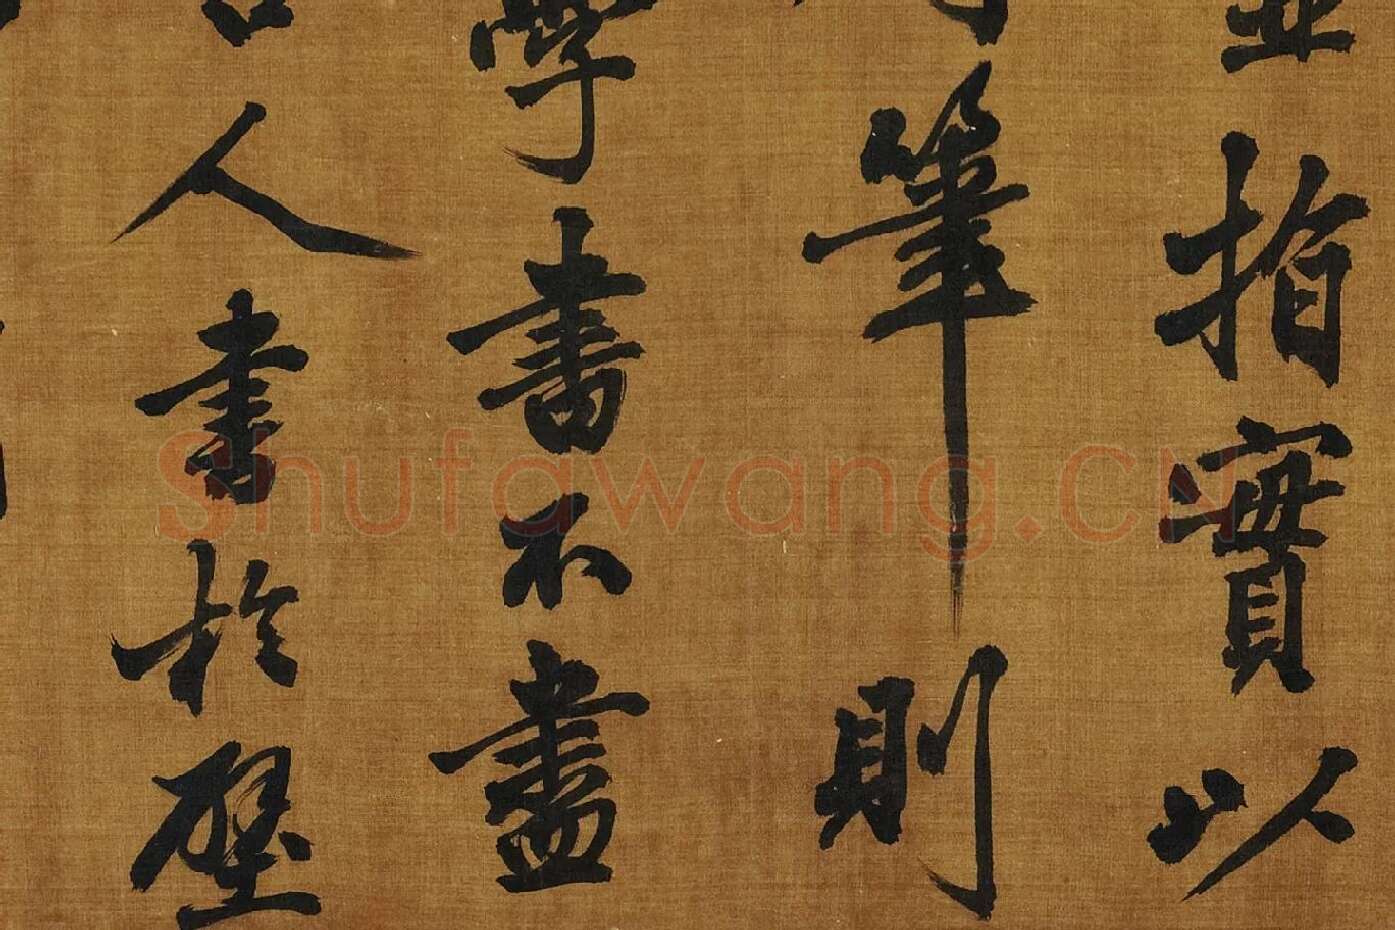 指實以
筆則
學書不盡
人書於壁
Shufawang.CN